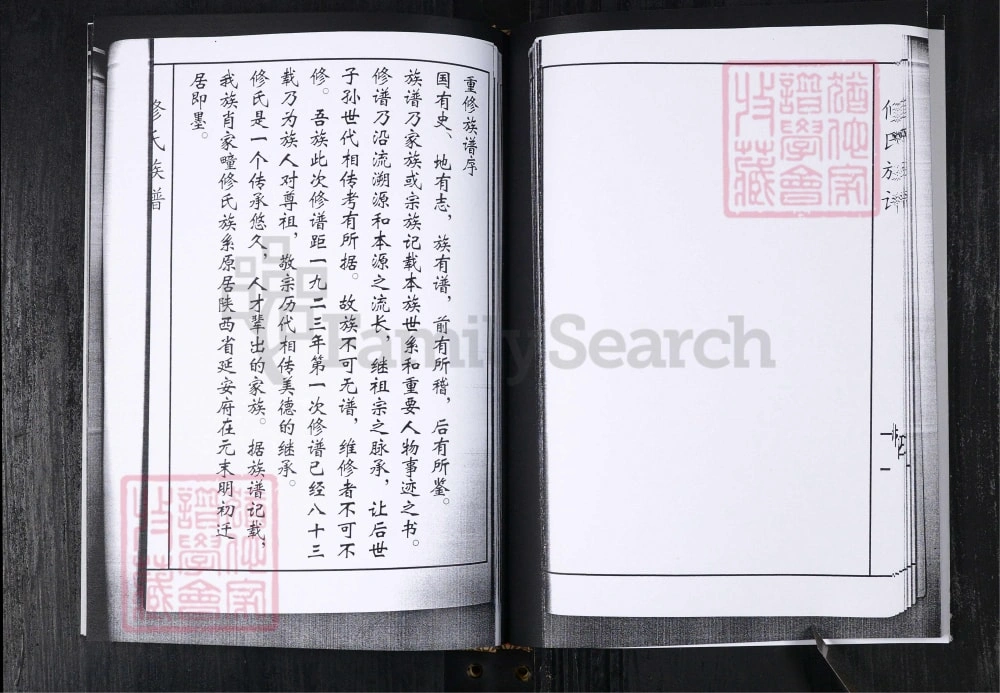 重修族谱序
国有史、地有志，族有谱，前有所稽，后有所鉴。
族谱乃家族或宗族记载本族世系和重要人物事迹之书。
修谱乃沿流溯源和本源之流长，继祖宗之脉承，让后世
子孙世代相传考有所据。故族不可无谱，维修者不可不
修。吾族此次修谱距一九二三年第一次修谱已经八十三
载乃为族人对尊祖，敬宗历代相传美德的继承。
修氏是一个传承悠久，人才辈出的家族。据族谱记载，
我族肖家疃修氏族系原居陕西省延安府在元末明初迁
居即墨。
修氏族谱
FamilySearch
谱学会
收藏
谱学会
收藏